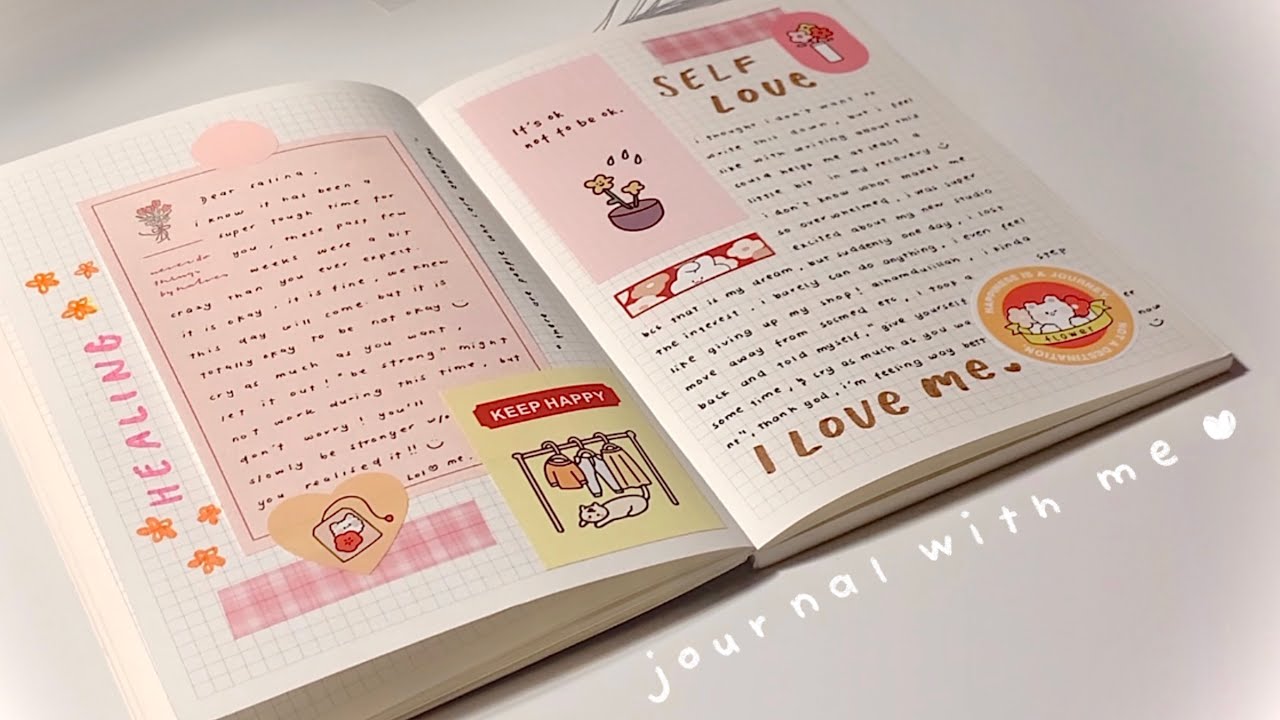 Dear salina,
i know it has been a
super tough time for
you, these past few
weeks were a bit
crazy than you ever expect.
it is okay, it is fine, we knew
this day will come. but it is
totally okay to be not okay
cry as much as you want,
let it out! "be strong" might
not work during this time, but
don't worry! you'll
slowly be stronger w/o
you realised it!!
me.
HEALING
there are people who
KEEP HAPPY
It's ok
not to be ok.
SELF
LOVE
i thought i don't want to
write this down, but i feel
like with writing about this
could helps me at least a
little bit in my recovery
i don't know what makes me
so overwhelmed, i was super
excited about my new studio
bct that is my dream, but suddenly one day, i lost
the interest, i barely can do anything, i even feel
like giving up my shop! alhamdulillah, i kinda
move away from socmed etc, i took a step
back and told myself, " give yourself
some time, & cry as much as you wa
nt", thank god, i'm feeling way bett er
now
HAPPINESS IS A JOURNEY,
NOT A DESTINATION
flower
I LOVE ME.
journal with me